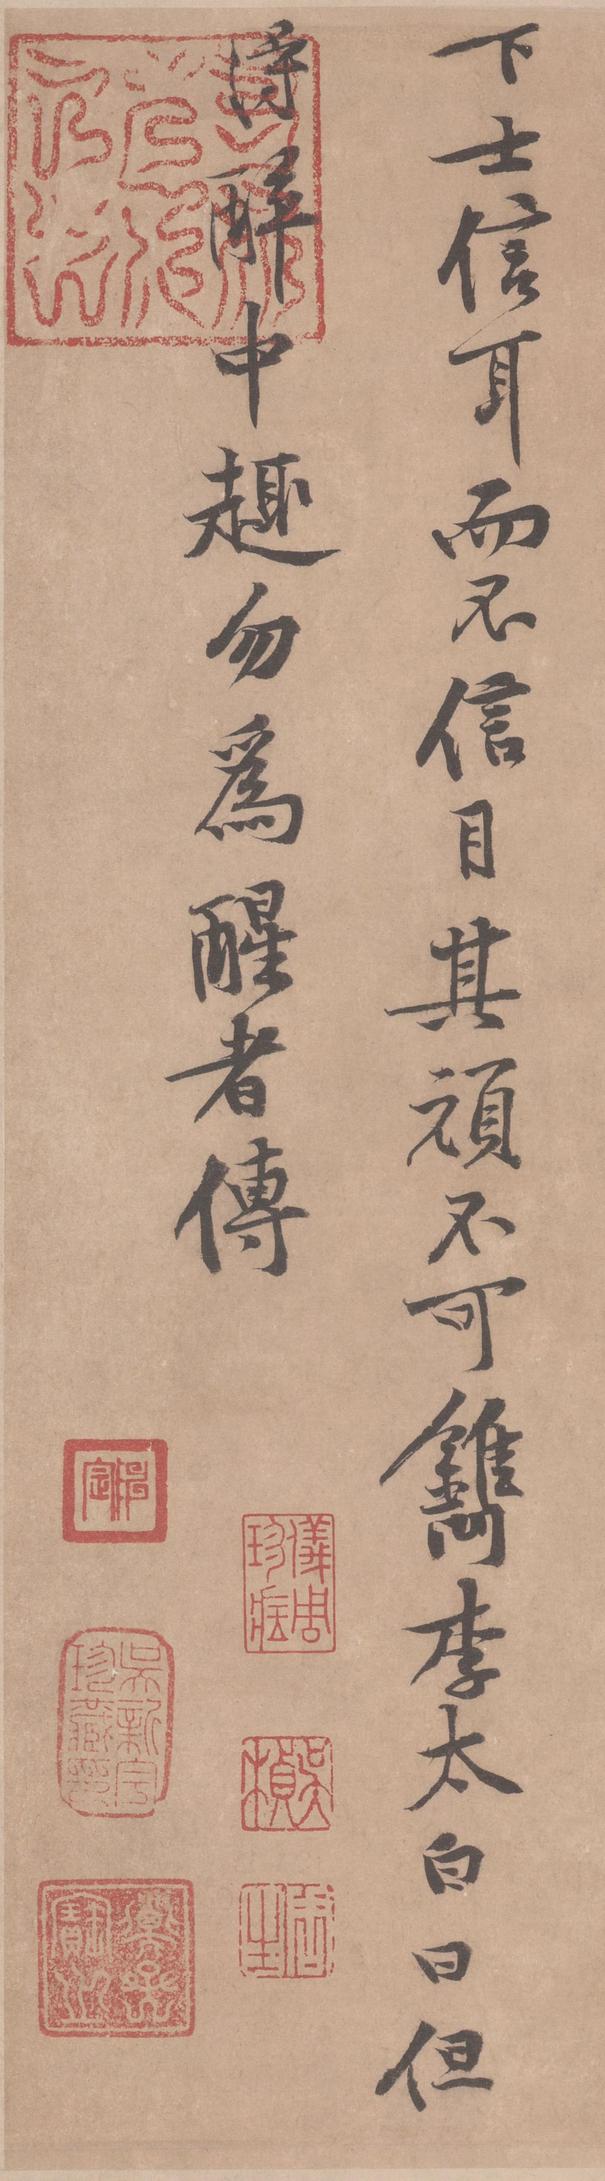 下士信耳而不信目其頑不可鐫李太白曰但
得醉中趣勿為醒者傳
儀周珍藏